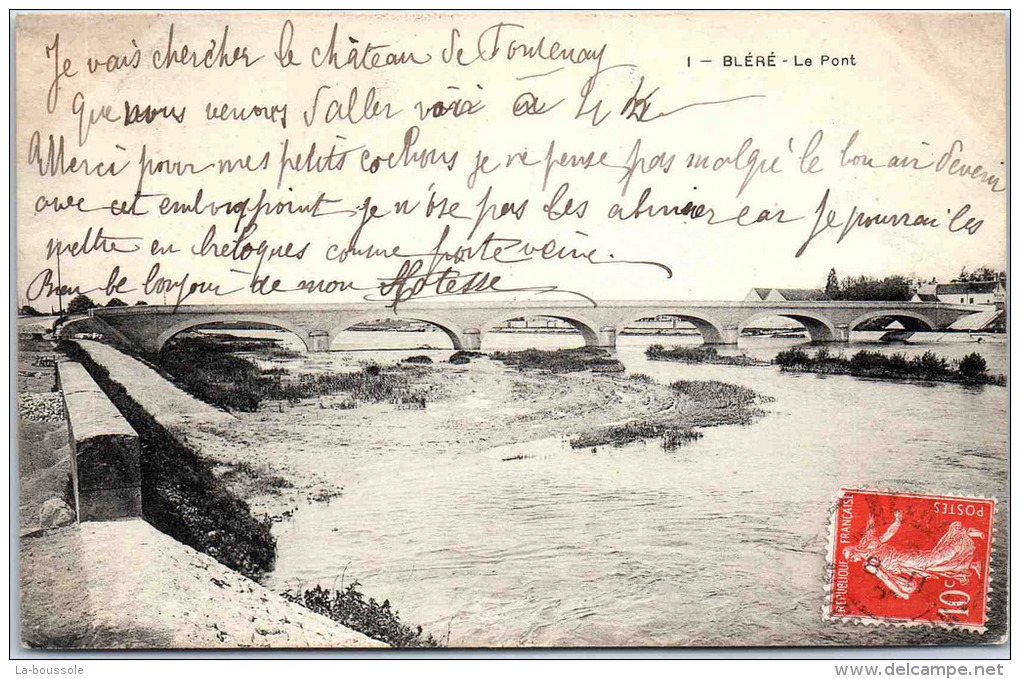 Je vais chercher le château de Fontenay
1 - BLÉRÉ - Le Pont
Que nous venons d'aller voir à 4 h½
Merci pour mes petits cochons je ne pense pas malgré le bon air devenir
avec cet embonpoint je n'ôse pas les abimer car je pourrai les
mettre en breloques comme porte veine.
Bien le bonjour de mon Hotesse
RÉPUBLIQUE FRANÇAISE
POSTES
10c
La-boussole
www.delcampe.net